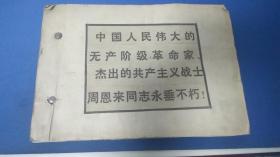 中国人民伟大的
无产阶级革命家
杰出的共产主义战士
周恩来同志永垂不朽！